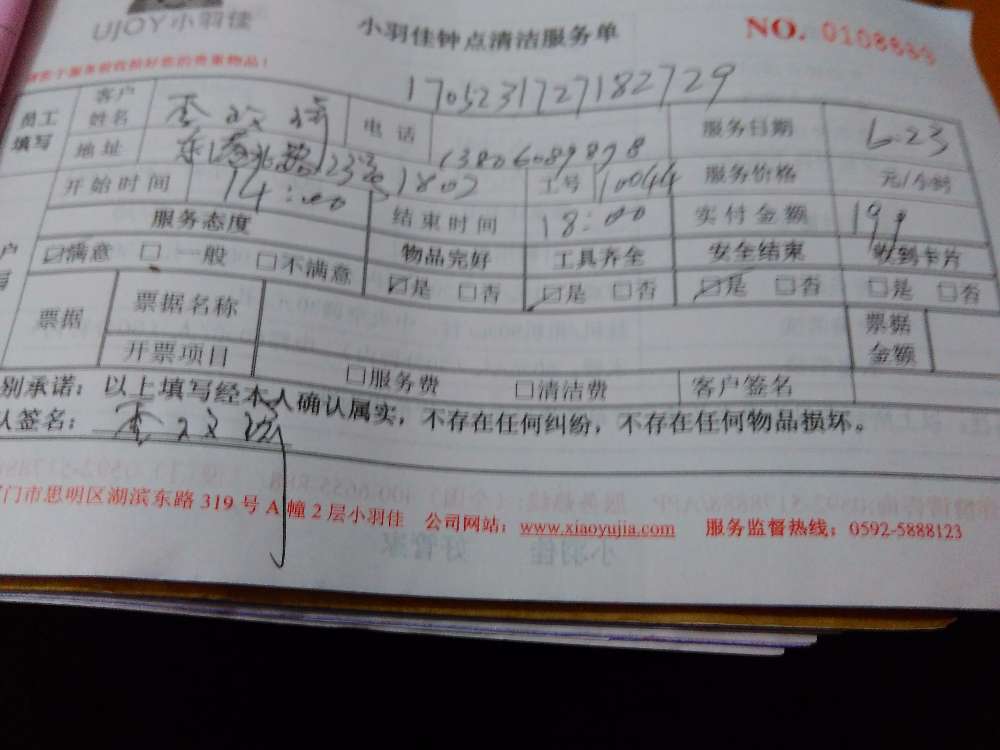 UJOY小羽佳
小羽佳钟点清洁服务单
NO. 0108835
170523172718 2729
员工填写 客户姓名 李 电话 服务日期 6.23
地址 1803 13806089898 工号 10044 服务价格 元/小时
开始时间 14:00 结束时间 18:00 实付金额 199
服务态度 物品完好 工具齐全 安全结束 收到卡片
☑满意 □一般 □不满意 ☑是 □否 ☑是 □否 ☑是 □否 □是 □否
票据 票据名称 票据金额
开票项目 □服务费 □清洁费 客户签名
别承诺：以上填写经本人确认属实，不存在任何纠纷，不存在任何物品损坏。
认签名：李
门市思明区湖滨东路 319 号 A 幢 2 层小羽佳 公司网站：www.xiaoyujia.com 服务监督热线：0592-5888123